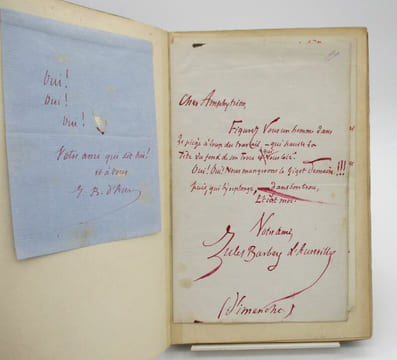 Oui!
Oui!
Oui!
Votre ami qui dit oui!
et à vous
J. B. d'Aur
Cher Amphytrion,
Figurez Vous un homme dans
le piège à loup du travail, – qui hausse la
Tête du fond d'un trou & qui vous dit:
Oui! Oui! Nous mangerons le Gigot Demain!!!
Puis, qui dans son trou,
Et c'est moi.
Votre ami,
Jules Barbey d'Aurevilly
(Dimanche)